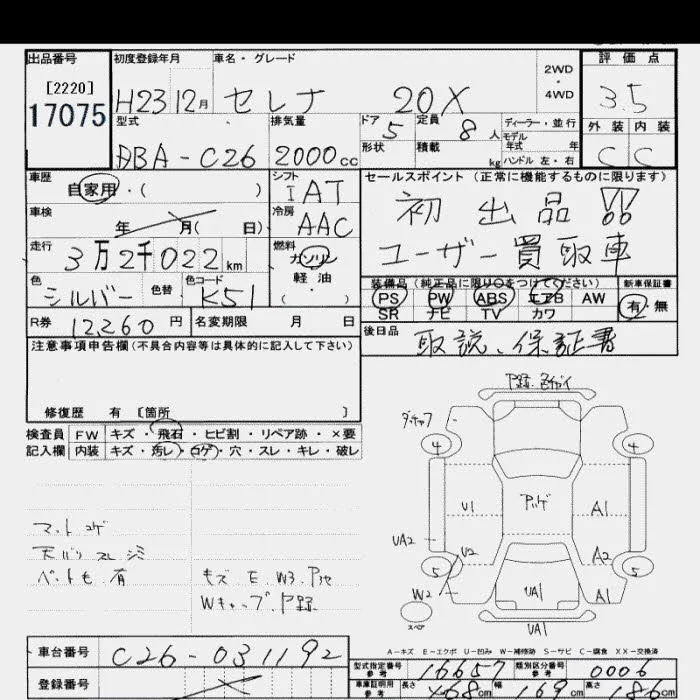 出品番号 初度登録年月 車名・グレード 2WD・4WD 評価点
[2220]
17075 H23 12月 セレナ 20X 3.5
型式 排気量 ドア 定員 ディーラー・並行 外装 内装
DBA-C26 2000cc 5 8人 モデル年式 年 C C
形状 積載 kg ハンドル 左・右
車歴 シフト セールスポイント (正常に機能するものに限ります)
自家用・( ) IAT 初出品!!
車検 年 月( 日) 冷房 AAC ユーザー買取車
走行 3万2千022km 燃料 ガソリン
軽油
・( )
色 シルバー 色替 色コード K51
装備品 (純正品に限り○をつけてください) 新車保証書
PS PW ABS エアB AW 有・無
SR ナビ TV カワ
R券 12260円 名変期限 月 日
後日品 取説、保証書
注意事項申告欄(不具合内容等は具体的に記入して下さい)
修復歴 有 [箇所 ]
検査員 FW キズ・飛石・ヒビ割・リペア跡・×要
記入欄 内装 キズ・汚レ・コゲ・穴・スレ・キレ・破レ
マットコゲ
天バリスレシミ
ペットも有
キズ E.W3.
Wキャップ.
4 4
U1 A1
UA2 U2 A2
5 5
W2 UA1 A1
スペア UA1
A-キズ E-エクボ U-凹み W-補修跡 S-サビ C-腐食 XX-交換済
車台番号 C26-031192
型式指定番号 参考 16657 類別区分番号 参考 0006
登録番号
車庫証明用 参考 長さ 468cm 幅 169cm 高さ 86cm